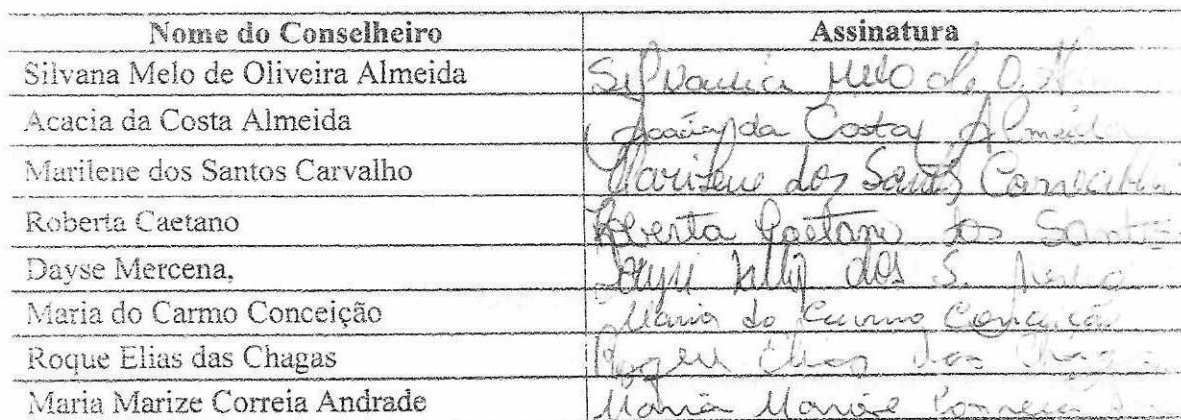 Nome do Conselheiro Assinatura
Silvana Melo de Oliveira Almeida Melo de O.
Acacia da Costa Almeida Acácia da Costa Almeida
Marilene dos Santos Carvalho Marilene dos Santos Carvalho
Roberta Caetano Roberta Caetano dos Santos
Dayse Mercena, dos S.
Maria do Carmo Conceição Maria do Carmo Conceição
Roque Elias das Chagas Roque Elias das Chagas
Maria Marize Correia Andrade Maria Marize Correia